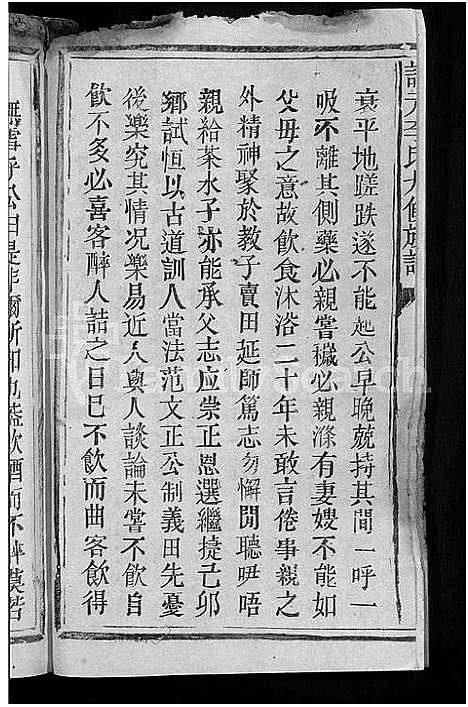 衰平地蹉跌遂不能起公早晚兢持其間一呼一
吸不離其側藥必親嘗穢必親滌有妻嫂不能如
父母之意故飲食沐浴二十年未敢言倦事親之
外精神聚於教子賣田延師篤志勿懈閒聽咿唔
親給茶水子亦能承父志应崇正恩選繼捷己卯
鄉試恒以古道訓人當法范文正公制義田先憂
後樂究其情况樂易近人與人談論未嘗不飲自
飲不多必喜客醉人詰之曰巳不飲而曲客飲得
公曰是非爾所知也蓋飲酒而不醉莫若